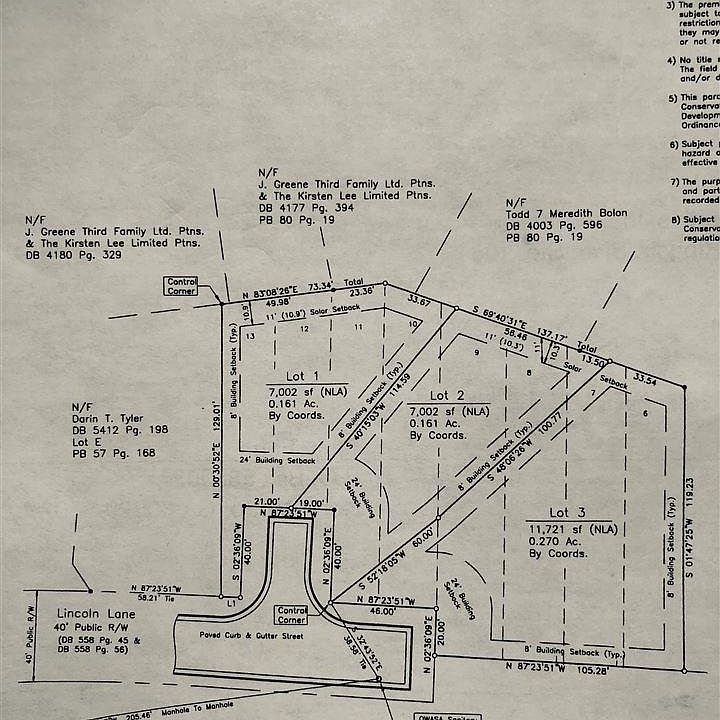 3) The prem
subject to
restriction
they may
or not re
4) No title
The field
and/or d
5) This parc
Conserva
Developm
Ordinanc
6) Subject
hazard
effective
7) The purp
and part
recorded
8) Subject
Conserva
regulatio
N/F
J. Greene Third Family Ltd. Ptns.
& The Kirsten Lee Limited Ptns.
DB 4177 Pg. 394
PB 80 Pg. 19
N/F
Todd 7 Meredith Bolon
DB 4003 Pg. 596
PB 80 Pg. 19
N/F
J. Greene Third Family Ltd. Ptns.
& The Kirsten Lee Limited Ptns.
DB 4180 Pg. 329
Control
Corner
N 83°08'26"E 73.34' Total
49.98'
23.36'
33.67
S 69°40'31"E 137.17' Total
56.46
13.50'
33.54
10.9'
11' (10.9') Solar Setback
13
12
11
10
11' (10.3')
11'
10.3'
Solar Setback
9
8
7
6
8' Building Setback (Typ.)
N 00°30'52"E 129.01'
Lot 1
7,002 sf (NLA)
0.161 Ac.
By Coords.
8' Building Setback (Typ.)
S 40°15'03"W 114.59
Lot 2
7,002 sf (NLA)
0.161 Ac.
By Coords.
8' Building Setback (Typ.)
S 48°06'26"W 100.77
N/F
Darin T. Tyler
DB 5412 Pg. 198
Lot E
PB 57 Pg. 168
24' Building Setback
24' Building
Setback
Lot 3
11,721 sf (NLA)
0.270 Ac.
By Coords.
8' Building Setback (Typ.)
S 01°47'25"W 119.23
21.00'
19.00'
N 87°23'51"W
S 02°36'09"W
40.00'
N 02°36'09"E
40.00'
S 52°18'05"W 60.00'
24' Building
Setback
N 87°23'51"W
58.21' Tie
L1
Control
Corner
N 87°23'51"W
46.00'
N 02°36'09"E
20.00'
Lincoln Lane
40' Public R/W
(DB 558 Pg. 45 &
DB 558 Pg. 56)
40' Public R/W
Paved Curb & Gutter Street
32°43'52"E
38.58' Tie
8' Building Setback (Typ.)
N 87°23'51"W 105.28'
205.46' Manhole To Manhole